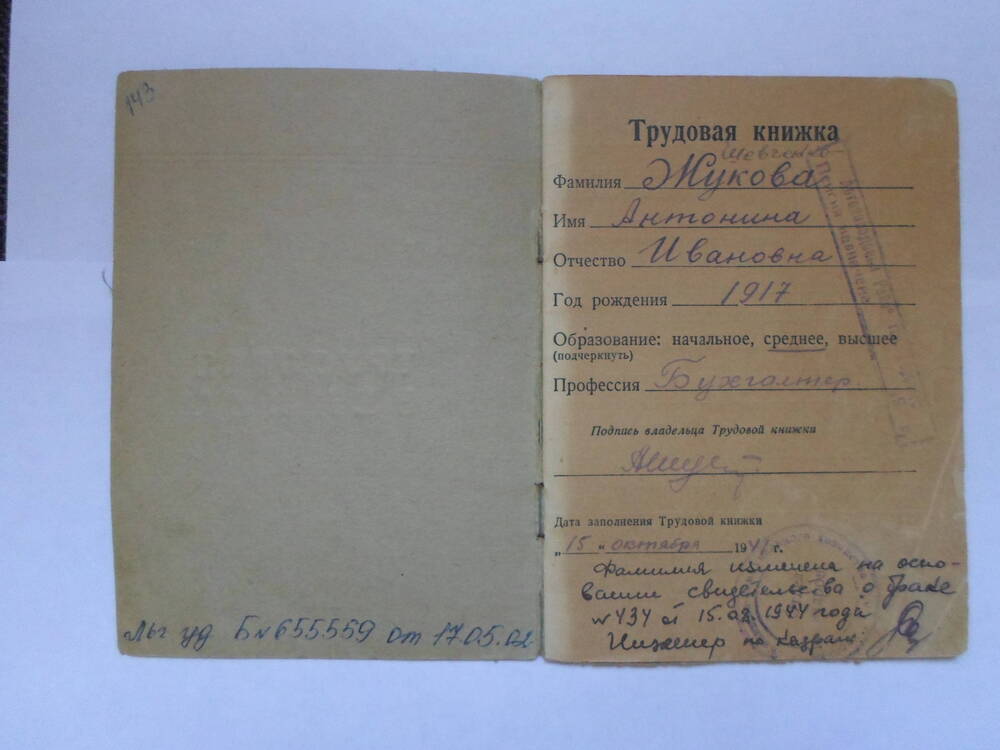 143
Льг уд Б№655559 от 17.05.02
Трудовая книжка
Шевченко
Фамилия Жукова
Имя Антонина
Отчество Ивановна
Год рождения 1917
Образование: начальное, среднее, высшее
(подчеркнуть)
Профессия Бухгалтер
Пенсия назначена
Подпись владельца Трудовой книжки
Дата заполнения Трудовой книжки
„15„ октября 1941 г.
Фамилия изменена на осно-
вании свидетельства о браке
№434 от 15.02.1944 года
Инженер по кадрам: